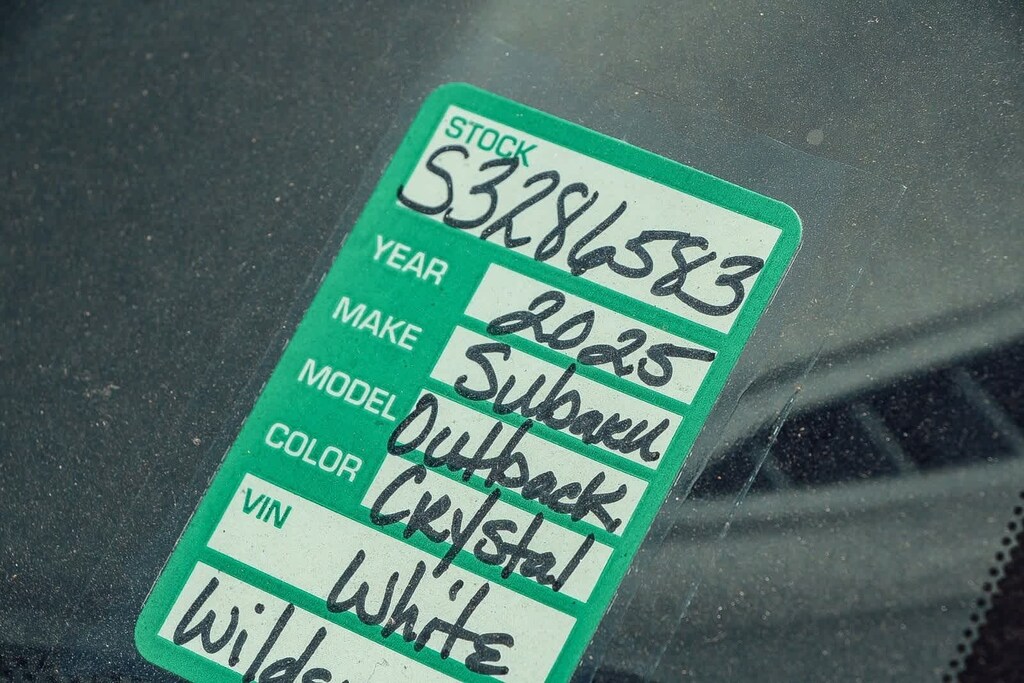 STOCK
S3286583
YEAR 2025
MAKE Subaru
MODEL Outback
COLOR Crystal
VIN
White